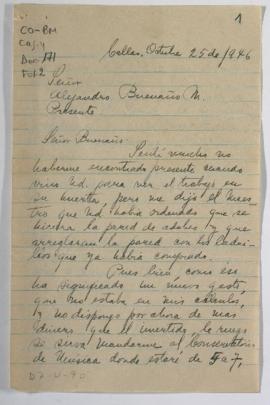 1
CO-BM
Caj. 4
Doc. 171
Fol. 2
Callao, Octubre 25 de/946
Señor
Alejandro Buenaño M.
Presente
Señor Buenaño:
Sentí mucho no
haberme encontrado presente cuando
vino Ud. para ver el trabajo en
su huerta, pero me dijo el maes-
tro que Ud. había ordenado que se
hiciera la pared de adobes y que
arreglaran la pared con los ladri-
llos que ya había comprado.
Pues bien, como eso
ha significado un nuevo gasto,
que no estaba en mis cálculos,
y no dispongo por ahora de mas
dinero que el invertido, le ruego
se sirva mandarme al Conservatorio
de Música donde estaré de 5 a 7,